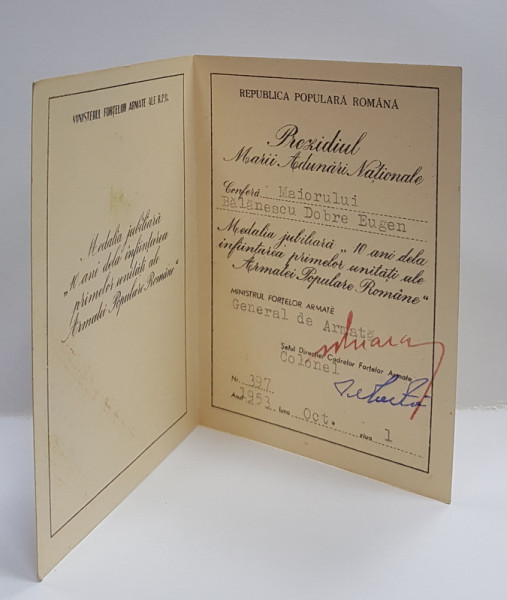 MINISTERUL FORȚELOR ARMATE ALE R.P.R.
Medalia jubiliară
„10 ani dela înființarea
primelor unități ale
Armatei Populare Române"
REPUBLICA POPULARĂ ROMÂNĂ
Prezidiul
Marii Adunări Naționale
Conferă Maiorului
Bălănescu Dobre Eugen
Medalia jubiliară „10 ani dela
înființarea primelor unități ale
Armatei Populare Române"
MINISTRUL FORȚELOR ARMATE
General de Armată
Șeful Direcției Cadrelor Forțelor Armate
Colonel
Nr. 397
Anul 1953 luna Oct. ziua 1